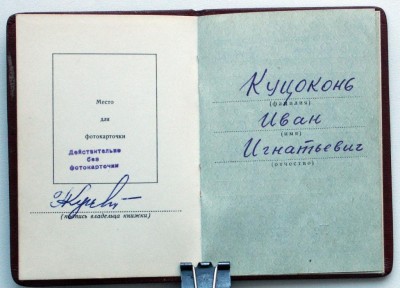 Место
для
фотокарточки
Действительно
без
фотокарточки
(подпись владельца книжки)
Куцоконь
(фамилия)
Иван
(имя)
Игнатьевич
(отчество)